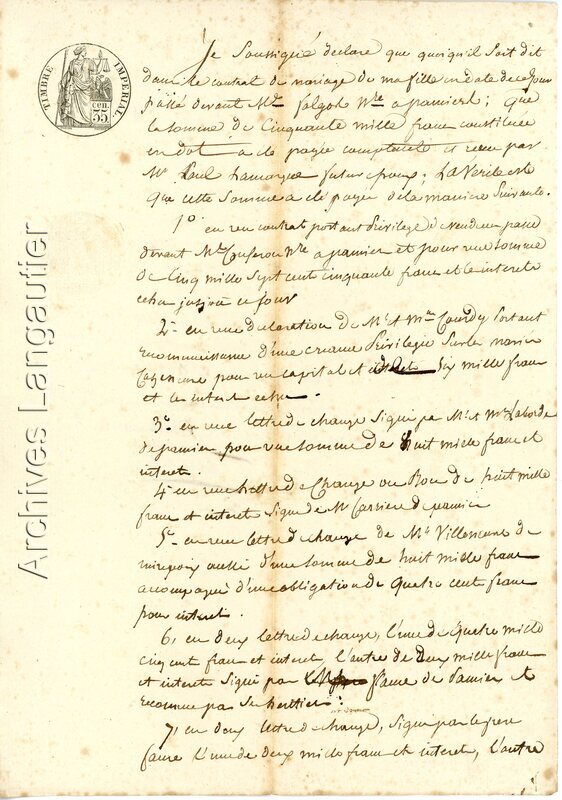 TIMBRE IMPERIAL
35 cen.
Archives Langautier
Je Soussigné déclare que quoiqu'il soit dit
dans le contrat de mariage de ma fille en date de ce Jour
passé devant Me Salgot Nre a pamiers; Que
la somme de Cinquante mille franc constituée
en dot a été payée comptable et reçu par
Mr Paul Lamarque futur epoux; La Verité est
Que cette somme a été payée de la maniere Suivante.
1o en un contrat portant Privilege de vendeur passé
devant Me Nre a pamier et pour une somme
de Cinq mille sept cent cinquante franc et le interets
echu jusqu'à ce four
2o en une declaration de Mr et Mme Courdy Portant
reconnaissance d'une creance Privilegié Sur la maison
pour un capital et Six mille franc
et le interet echu.
3o en une lettre de change signé par Mr et Me Laborde
de pamier pour une somme de huit mille franc et
interet.
4o en une lettre de Change ou Bon de huit mille
franc et interet signé de Mr Carriere de pamier
5o en une lettre de change de Mr de
mirepoix aussi d'une somme de huit mille franc
accompagné d'une obligation de Quatre cent franc
pour interet.
6, en deux lettre de change, l'une de Quatre mille
cinq cent franc et interet, l'autre de deux mille franc
et interet signé par faure de Pamier et
reconnue par se heritier.
7, en deux lettre de change, signé par le frere
faure l'une de deux mille franc et interet, l'autre